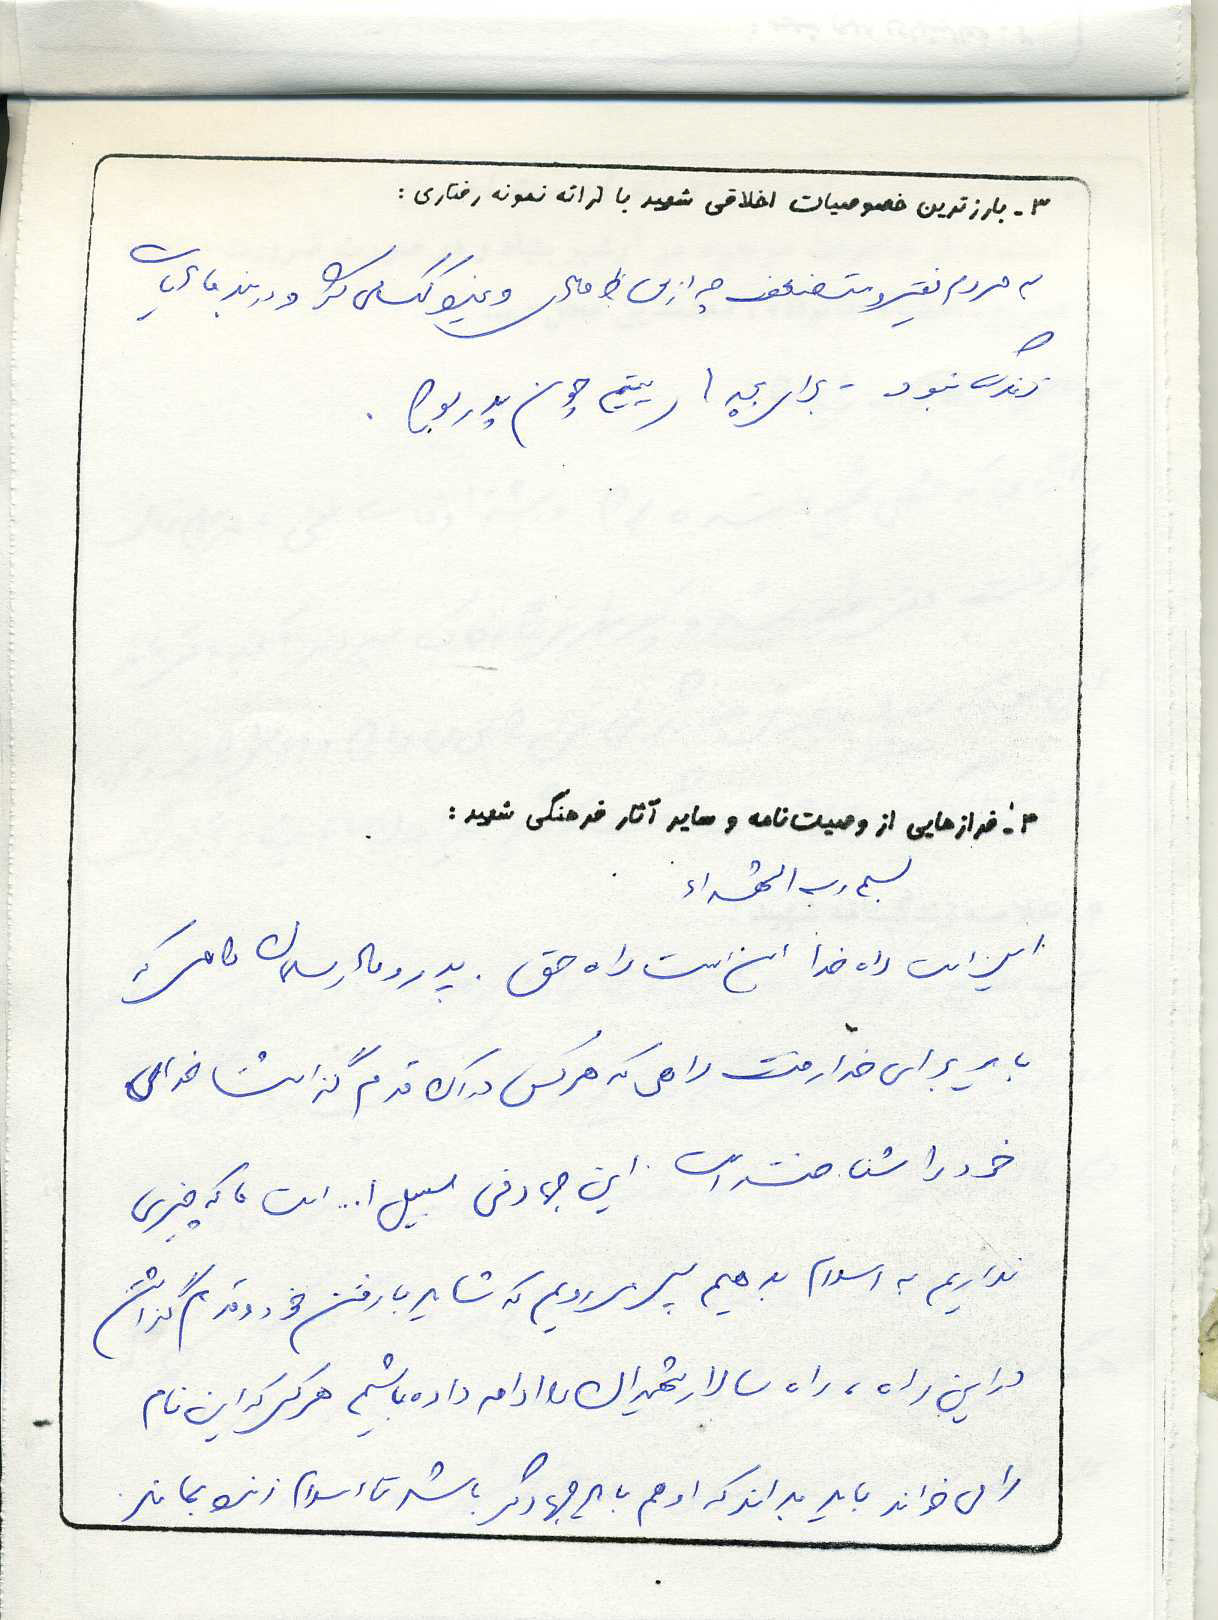 ۳ـ بارزترین خصوصیات اخلاقی شهید با ارائه نمونه رفتاری :
به مردم فقیر و مستضعف چه از نظر مالی و غیره کمک می کرد و در بند مادیات
زندگی نبود - برای بچه های یتیم چون پدر بود .
۴ـ فرازهایی از وصیت‌نامه و سایر آثار فرهنگی شهید :
بسم رب الشهداء
این است راه خدا این است راه حق . پدر و مادر راهی که
باید برای خدا رفت راهی که هر کس در آن قدم گذاشت خدای
خود را شناخته است . این جهاد فی سبیل ا... است ما که چیزی
نداریم به اسلام بدهیم پس می رویم که شاید با رفتن خود و قدم گذاشتن
در این راه ، راه سالار شهیدان را ادامه داده باشیم هر کس که این نام
را می خواند باید بداند که او هم باید جهادگر باشد تا اسلام زنده بماند .